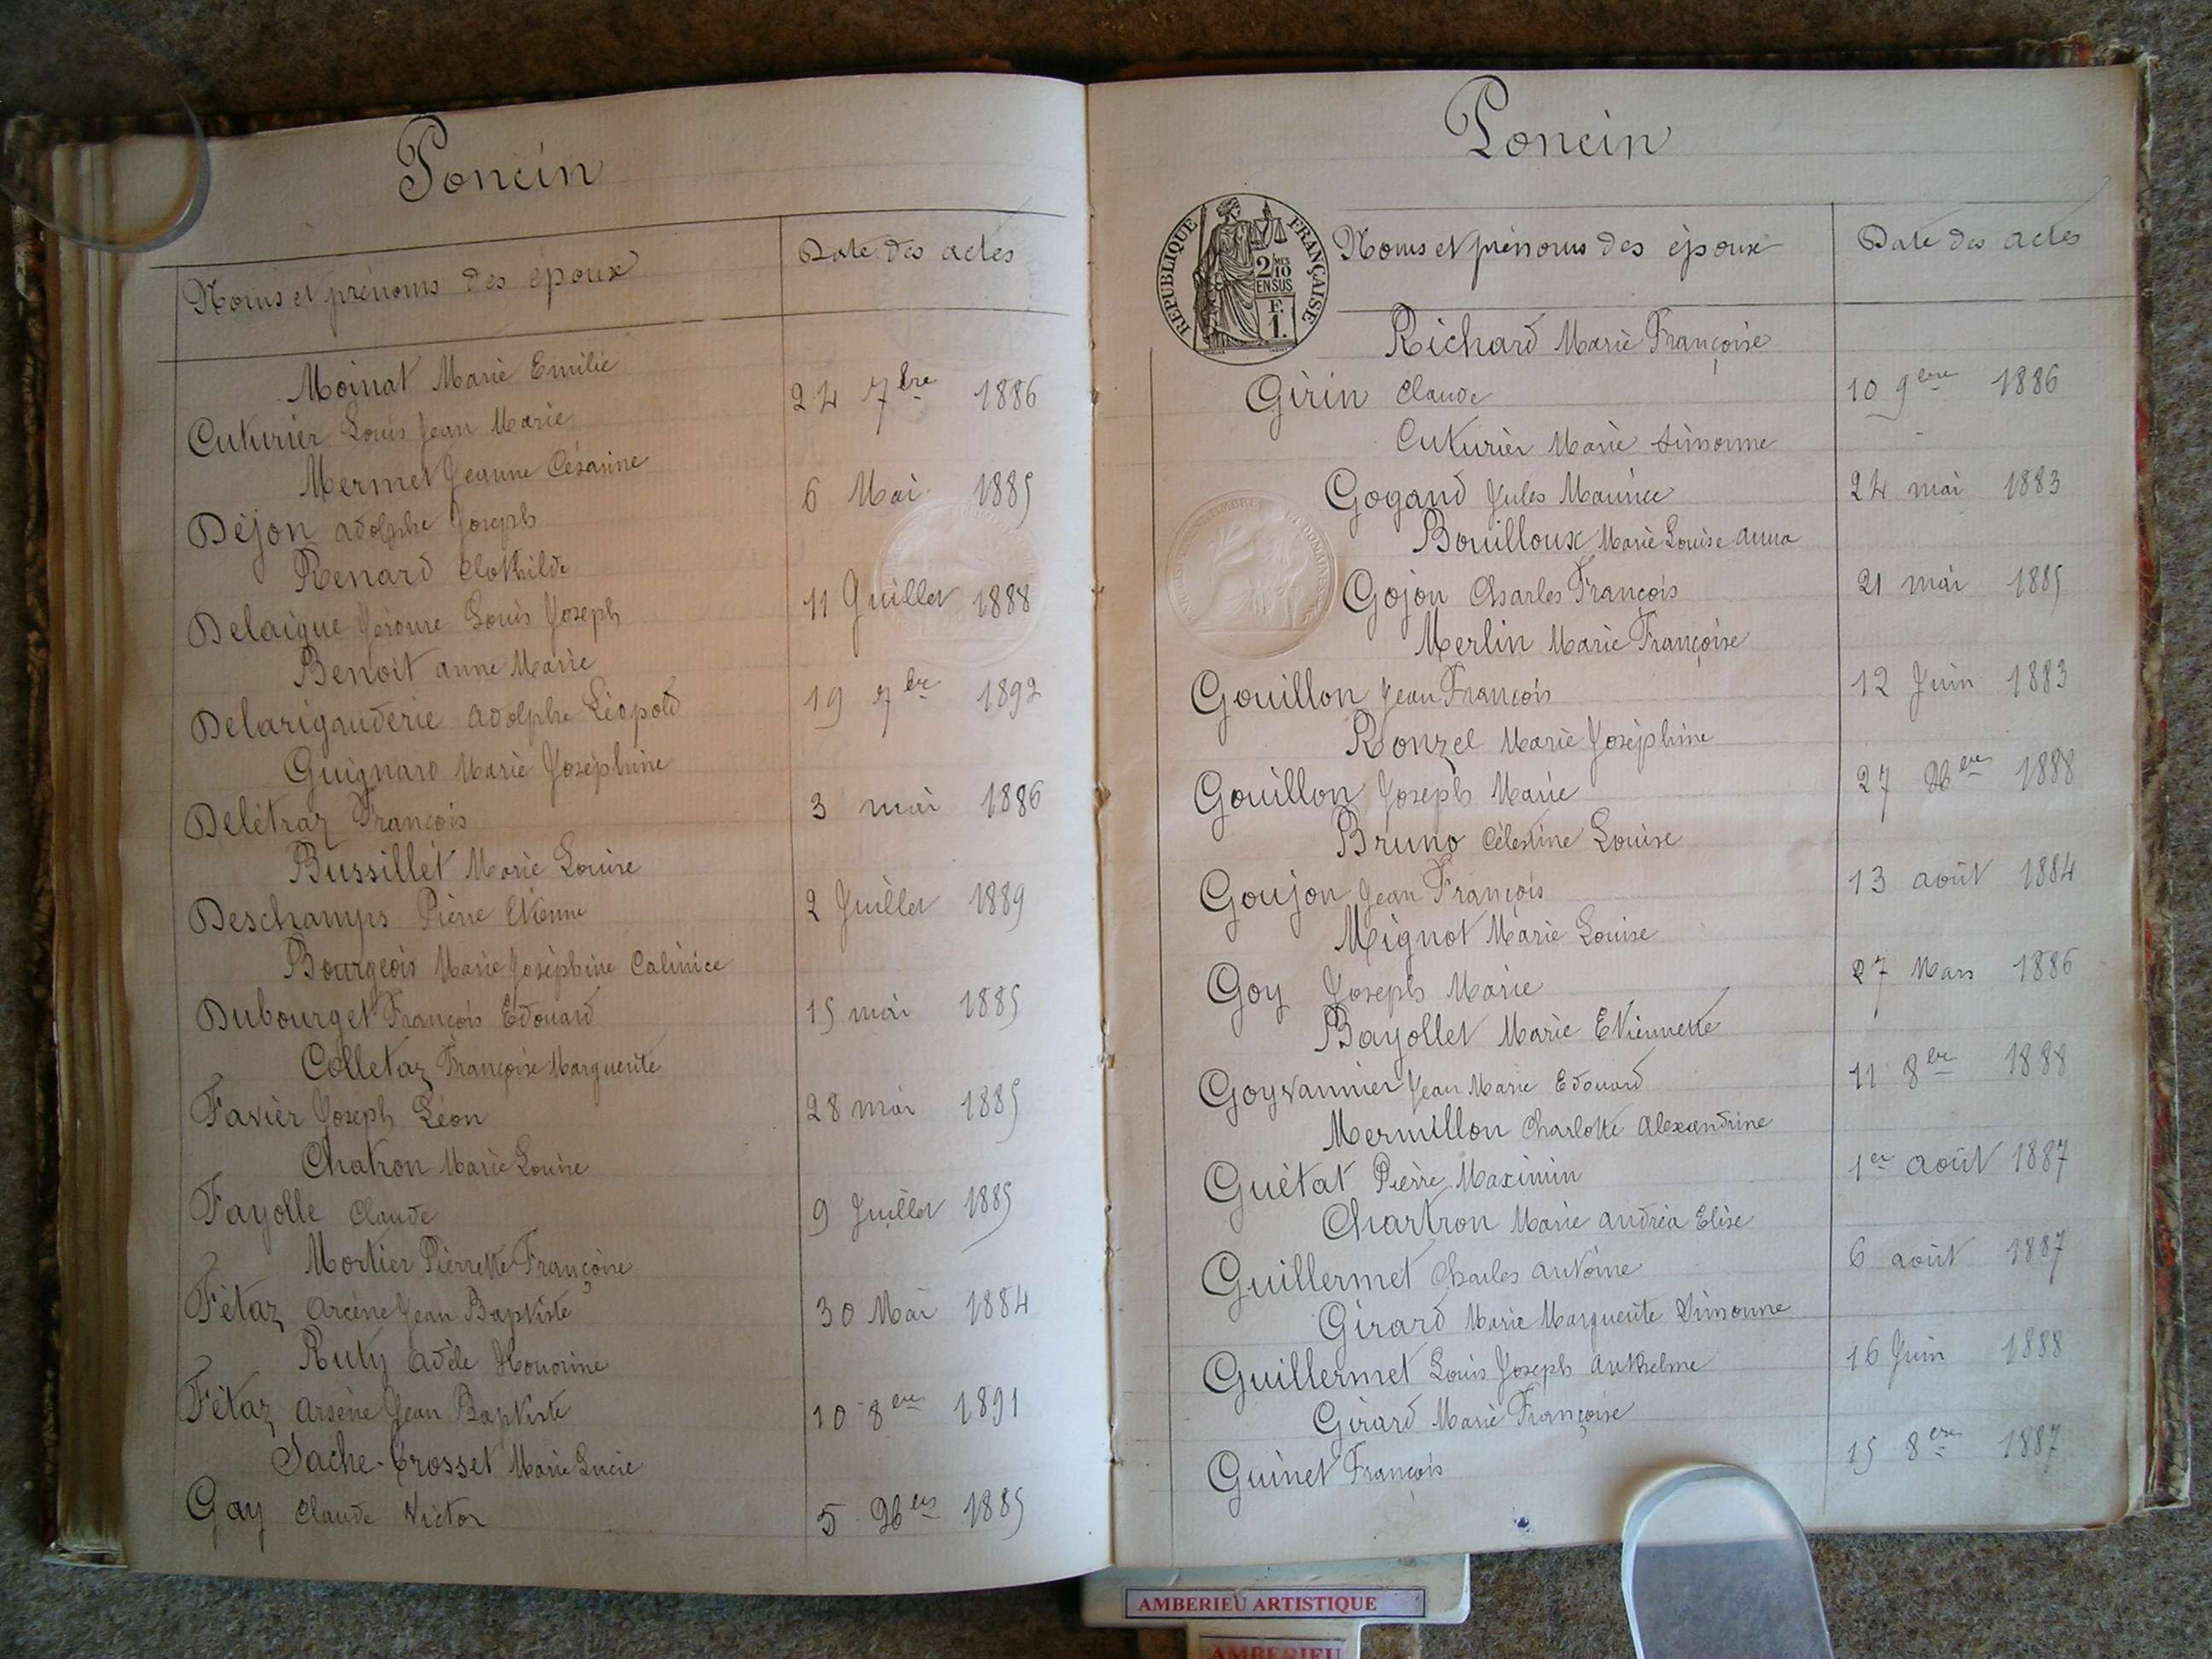 Poncin
Noms et prénoms des époux
Date des actes
Moinat Marie Emilie
Cuturier Louis Jean Marie 24 7bre 1886
Mermet Jeanne Césarine
Déjon Adolphe Joseph 6 Mai 1885
Renard Clothilde
Delaigue Jérome Louis Joseph 11 Juillet 1888
Benoit Anne Marie
Delarigauderie Adolphe Léopold 19 7br 1892
Guignard Marie Joséphine
Delétraz François 3 mai 1886
Bussillet Marie Louise
Deschamps Pierre Etienne 2 Juillet 1889
Bourgeois Marie Joséphine Calinice
Dubourget François Edouard 15 mai 1885
Colletaz Françoise Marguerite
Favier Joseph Léon 28 mai 1885
Chatron Marie Louise
Fayolle Claude 9 Juillet 1885
Mortier Pierrette Françoise
Fétaz Arcène Jean Baptiste 30 Mai 1884
Ruty Adèle Honorine
Fétaz Arsène Jean Baptiste 10 8bre 1891
Sache-Crosset Marie Lucie
Gay Claude Victor 5 Xbre 1885
Poncin
REPUBLIQUE FRANÇAISE
2 MES 10 EN SUS
F. 1.
Noms et prénoms des époux
Date des actes
Richard Marie Françoise
Girin Claude 10 9bre 1886
Cuturier Marie Simonne
Gogand Jules Maurice 24 mai 1883
Bouilloux Marie Louise Anna
Gojon Charles François 21 mai 1885
Merlin Marie Françoise
Gouillon Jean François 12 Juin 1883
Ronzel Marie Joséphine
Gouillon Joseph Marie 27 Xbre 1888
Bruno Célestine Louise
Goujon Jean François 13 août 1884
Mignot Marie Louise
Goy Joseph Marie 27 Mars 1886
Bayollet Marie Etiennette
Goyvannier Jean Marie Edouard 11 8br 1888
Mermillon Charlotte Alexandrine
Guétat Pierre Maximin 1er août 1887
Chartron Marie Andréa Elise
Guillermet Charles Antoine 6 août 1887
Girard Marie Marguerite Simonne
Guillermet Louis Joseph Anthelme 16 Juin 1888
Girard Marie Françoise
Guinet François 15 8bre 1887
AMBERIEU ARTISTIQUE
AMBERIEU